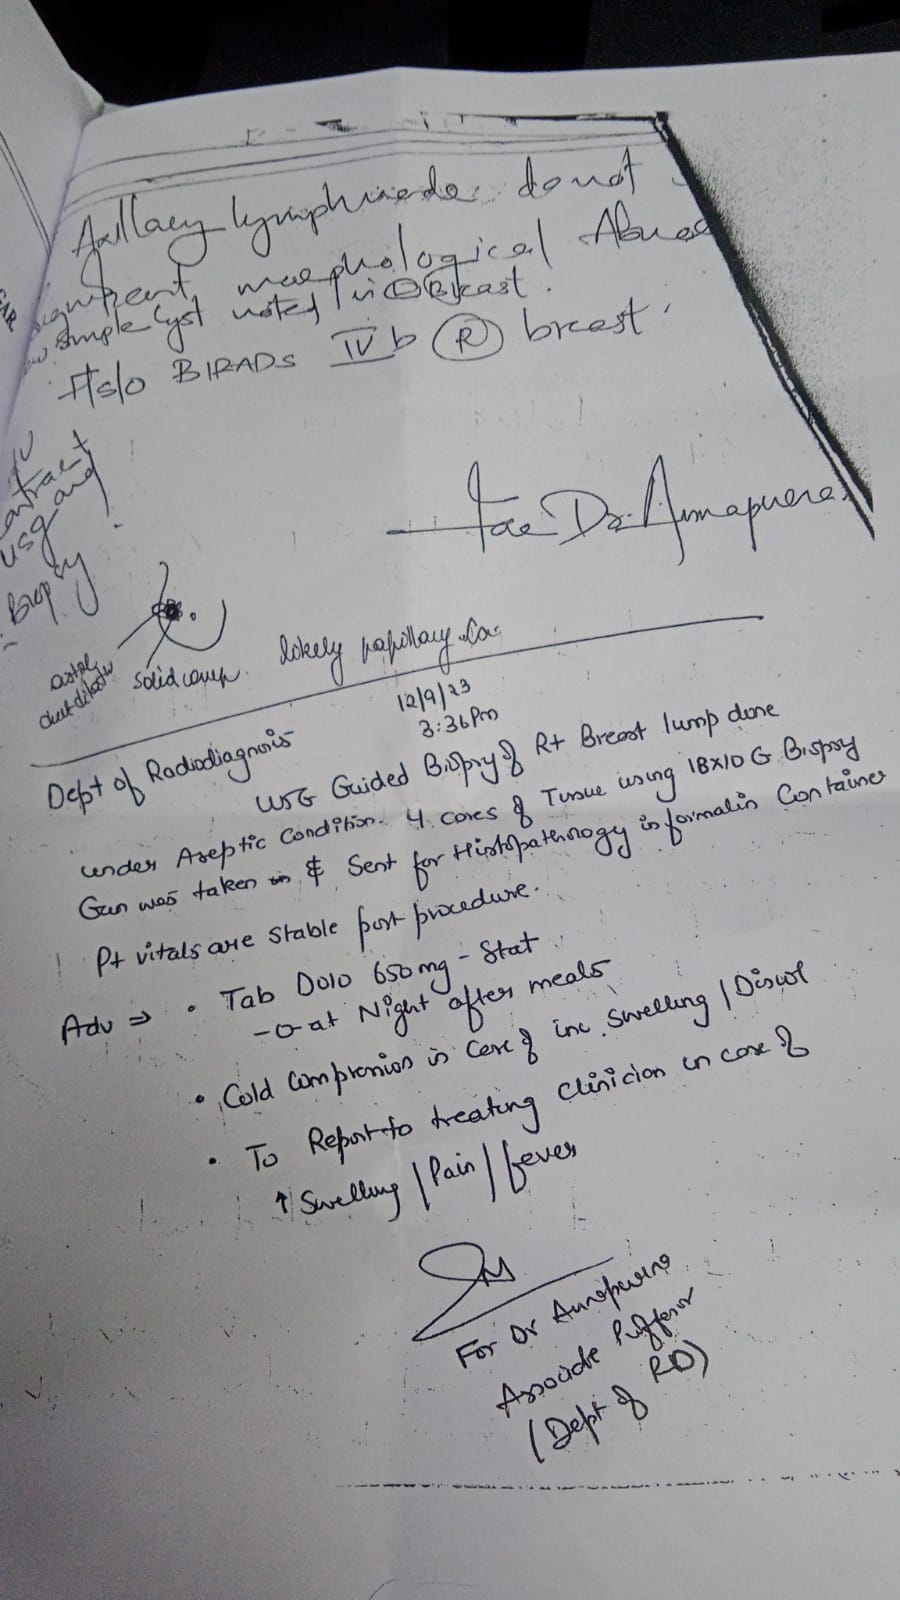 Axillary lymphnode do not
significant morphological
simple Cyst noted in Breast.
F/s/o BIRADS IVb (R) breast.
usg and
Biopsy
For Dr. Annapurna
solid comp. likely papillary Ca
12/9/23
3:36 Pm
Dept of Radiodiagnosis
USG Guided Biopsy of Rt Breast lump done
under Aseptic Condition. 4 cores of Tissue using 18x10 G Biopsy
Gun was taken & Sent for Histopathology in formalin Container
Pt vitals are stable post procedure.
Adv ⇒ • Tab Dolo 650mg - Stat
at Night after meals
• Cold Compression in Case of inc. Swelling / Discol
• To Report to treating Clinician in case of
↑ Swelling / Pain / fever
For Dr Annapurna
Associate Proffesor
(Dept of RD)